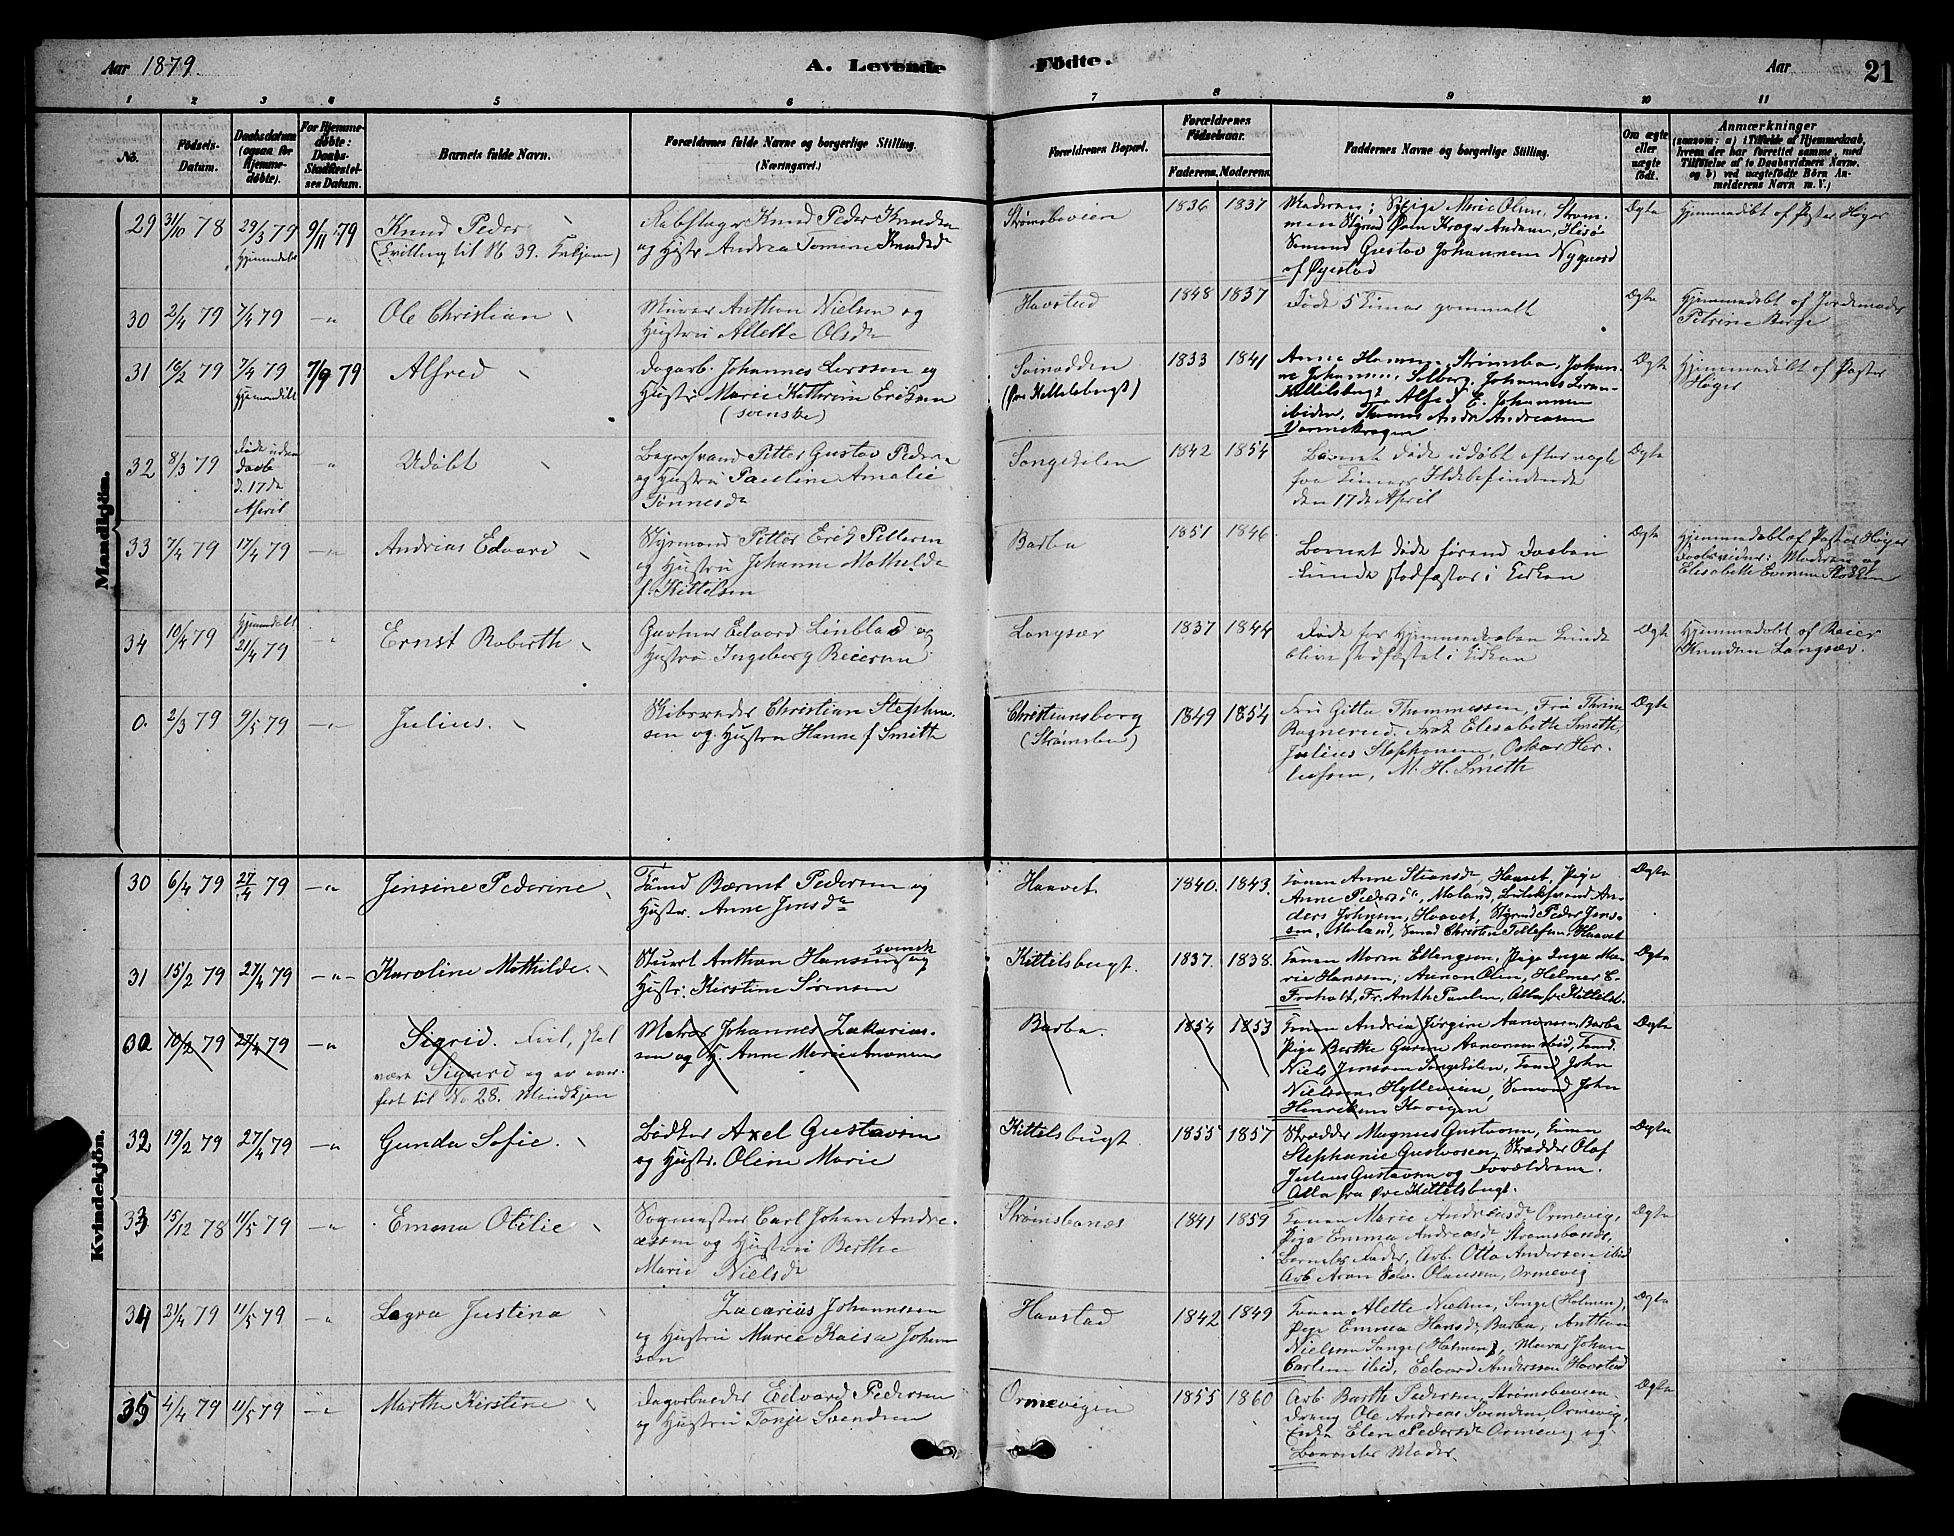 Aar 1879. A. Levende Födte. Aar 21
1 2 3 4 5 6 7 8 9 10 11
No. Födsels-Datum. Daabsdatum (ogsaa for Hjemmedøbte). For Hjemmedøbte: Daabs-Stadfæstelses Datum. Barnets fulde Navn. Forældrenes fulde Navne og borgerlige Stilling. (Næringsvei.) Forældrenes Bopæl. Forældrenes Födselsaar. Faderens. Moderens. Faddernes Navne og borgerlige Stilling. Om ægte eller uægte födt. Anmærkninger (saasom: a) i Tilfælde af Hjemmedaab, hvem der har forrettet samme, med Tilföielse af to Daabsvidners Navne, og b) ved uægtefödte Börn Anmelderens Navn m. V.)
Mandkjön.
29 31/10 78 29/3 79 Hjemmedøbt 9/11 79 Knud Peder
(Tvilling til N 39. Kvkjøn)
Rebslager Knud Peder Knudsen
og Hustr Andrea Tomine Knudsd
Strømsbuveien 1836 1837
Moderen; Pige Marie Olsen, Strømmen
Gustav Johannesen Nygaard
af Øyestad
Ægte Hjemmedøbt af Pastor Høyer
30 2/4 79 7/4 79 -"- Ole Christian
Murer Anthon Nielsen og
Hustru Allette Olsdr
Havstad 1848 1837 Døde 5 Timer gammelt Ægte
Hjemmedøbt af Jordemoder
Petrine Berge
31 16/2 79 7/4 79 Hjemmedøbt 7/9 79 Alfred
Dagarb. Johannes Larsson og
Hustr Marie Kathrine Eriksen
(svenske)
(Øvre Kittelsbugt) 1833 1841
Anne Hansen, Strømsbo, Johanne
Johansen, Solberg, Johannes
Kittelsbugt, Alfred E. Johannesen
ibidem, Thomas Andr Andreasen
Varmekrogen
Ægte Hjemmedøbt af Pastor
Høyer
32 8/3 79 Døde uden Daab d. 17de April -"- Udøbt
Bøgersvend Petter Gustav Peders
og Hustru Pauline Amalie
Tønnesdr
Songekilen 1842 1854
Barnet døde udøbt efter nogle
faa Timers Ildebefindende
den 17de April
Ægte
33 7/4 79 17/4 79 -"- Andrias Edvard
Styrmand Petter Erik Pettersen
og Hustru Johanne Mathilde
f. Kittelsen
Barbu 1851 1846
Barnet døde førend Daaben
kunde stadfæstes i Kirken
Ægte Hjemmedøbt af Pastor Høyer
Daabsvidner: Moderen og
Elisabeth Evensen Stokken
34 10/4 79 Hjemmedøbt 21/4 79 -"- Ernst Roberth
Gartner Edvard Linblad og
Hustru Ingeborg Reiersen
Langsæv 1837 1844
Døde før Hjemmedaaben kunde
blive stadfæstet i Kirken
Ægte Hjemmedøbt af Reier
Knudsen Langsæv.
0. 2/3 79 9/5 79 -"- Julius.
Skibsreder Christian Stephansen
og Hustru Hanne f Smith
Christiansborg
(Strømsbu) 1849 1854
Fru Gitta Thommessen, Fru Thrine
Elisabeth Smith,
Julius Stephansen, Oskar Herlufsen,
M. H. Smith
Ægte
Kvindekjön.
30 6/4 79 27/4 79 -"- Jensine Pederine
Tømd Bærnt Pedersen og
Hustr. Anne Jensdr
Haavet 1840. 1843.
Konen Anne Steansdr, Haavet, Pige
Anne Pedersdr, Moland, Anders
Johnsen, Haavet, Styrmd Peder Jenssen,
Moland, Sømd Christen Tellefsen, Haavet
Ægte
31 15/2 79 27/4 79 -"- Karoline Mathilde.
Stuert Anthon Hanssen svensk og
Hustr. Kirstine Sørensen
Kittelsbugt. 1837. 1838.
Konen Maren Ellingsen, Pige Inga Marie
Hanssen, Aanon Olsen, Helmer E.
Froholt, Fr. Anth Paulsen, Alle fr Kittelsb.
Ægte
30 10/2 79 27/4 79 -"- Sigrid. Feil, skal
være Sigurd og er overført
til No 28. Mandkjøn
Matros Johannes Zakariassen
og H. Anne Marie Anonsen
Barbu. 1854 1853
Konen Andrea Jørgine Aanonsen, Barbu
Pige Berthe Gurine Aanonsen ibid, Tømd.
Niels Jenssen Songekilen, Tømd John
Nielssen, Hylleveien, Sømand John
Henriksen Kovigen
Ægte
32 19/2 79 27/4 79 -"- Gunda Sofie.
Bødker Axel Gustavsen
og Hustr. Oline Marie
Kittelsbugt. 1855 1857
Skrædder Magnus Gustavsen, Konen
Stephanie Gustavsen, Skrædder Olaf
Julius Gustavsen og Forældrene.
Alle fra Øvre Kittelsbugt.
Ægte
33 15/12 78 11/5 79 -"- Emma Otilie
Sogmester Carl Johan Andreassen
og Hustru Berthe
Marie Nielsdr
Strømsbunæs 1841 1859
Konen Marie Andreasdr Ormevig,
Pige Emma Andreasdr Strømsbunæs,
Barnets Fader, Arb. Otto Andersen ibid
Arb Aron Salv. Olaussen, Ormevig
Ægte
34 21/4 79 11/5 79 -"- Lagra Justina
Zacarias Johannssen
og Hustru Marie Kaisa Johanssen
Havstad 1842 1849
Konen Alette Nielsen, Songe (Holmen),
Pige Emma Hansdr, Barbu, Anthon
Nielssen Songe (Holmen), Murer Johan
Carlsen ibid, Edvard Anderssen Havstad
Ægte
35 4/4 79 11/5 79 -"- Marthe Kirstine
Dagarbeider Edvard Pedersen
og Hustru Tonje Svendsen
Ormevigen 1855 1860
Arb Barth Pedersen, Strømsbuveien
Dreng Ole Andreas Svendsen, Ormevig,
Enke Elen Pedersdr Ormevig og
Barnets Moder.
Ægte